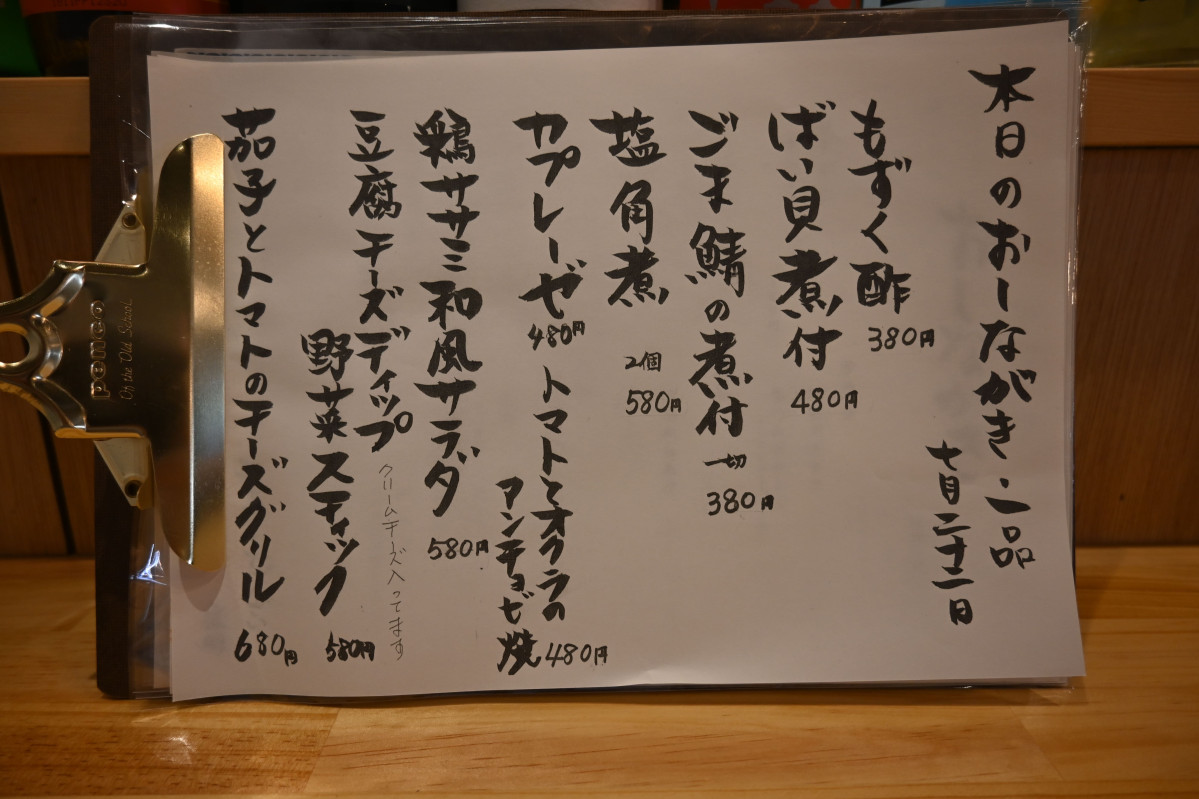 本日のおーながき 一品
七月二十二日
もずく酢 380円
ばい貝煮付 480円
ごま鯖の煮付 一切 380円
塩角煮 2個 580円
カプレーゼ 480円
トマトとオクラのアンチョビ焼 480円
鶏ササミ和風サラダ 580円
豆腐チーズディップ
クリームチーズ入ってます
野菜スティック 580円
茄子とトマトのチーズグリル 680円
penco
Of the Old School